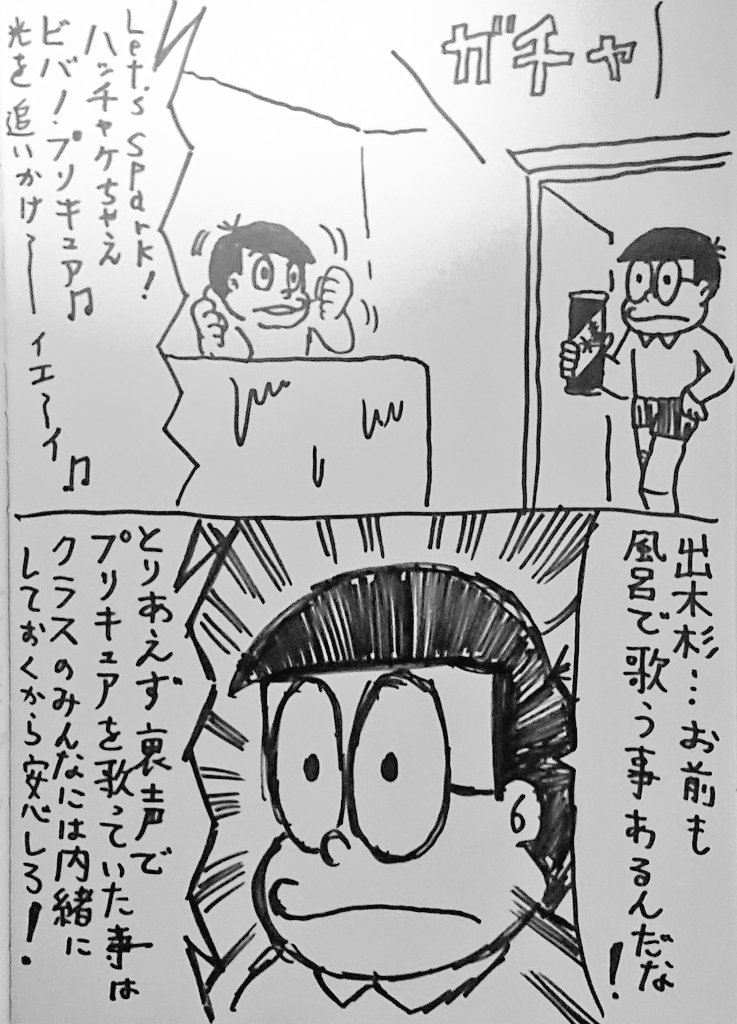 ガチャ
Let's spark!
ハッチャケちゃえ
ビバ!プリキュア♫
光を追いかけ〜ーイエ〜イ♫
出木杉…お前も
風呂で歌う事あるんだな!
とりあえず裏声で
プリキュアを歌っていた事は
クラスのみんなには内緒に
しておくから安心しろ!